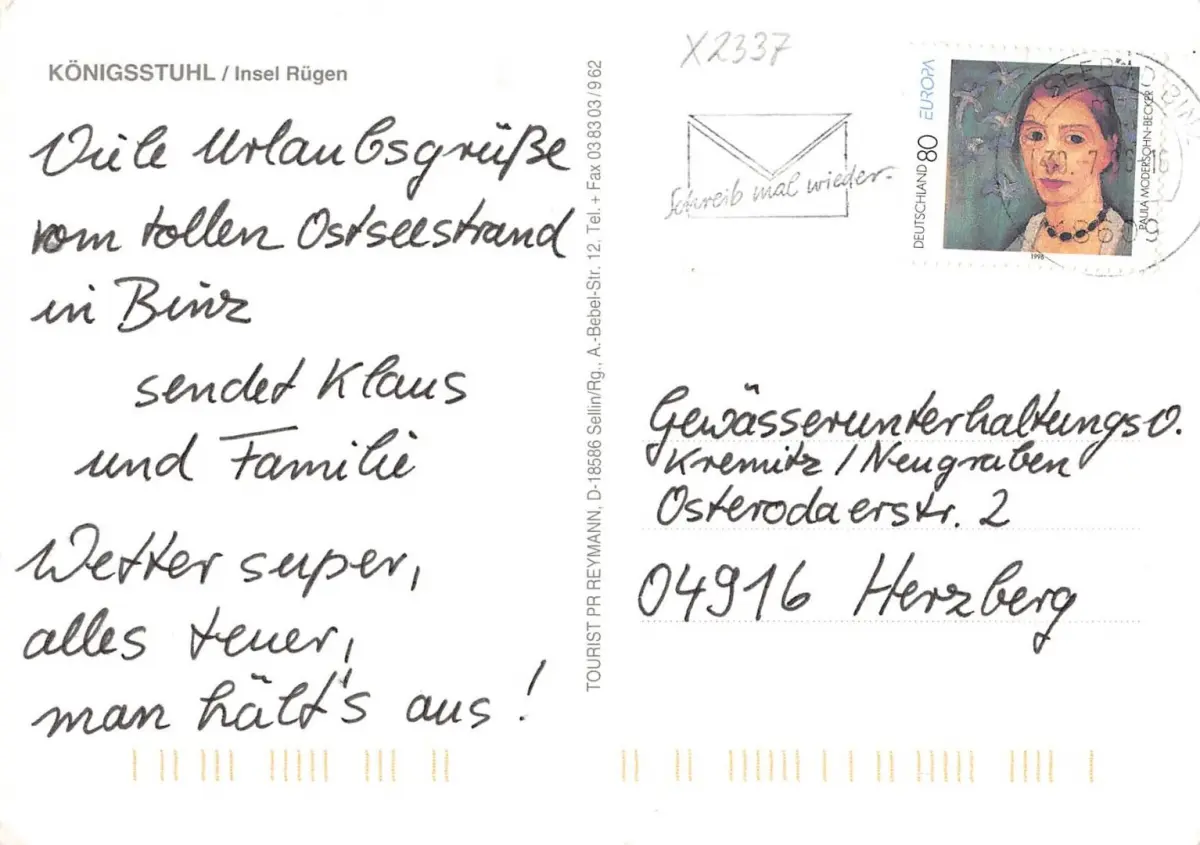 KÖNIGSSTUHL / Insel Rügen
Viele Urlaubsgrüße
vom tollen Ostseestrand
in Binz
sendet Klaus
und Familie
Wetter super,
alles teuer,
man hält's aus!
TOURIST PR REYMANN, D-18586 Sellin/Rg., A.-Bebel-Str. 12, Tel.+ Fax 03 83 03 / 9 62
X2337
Schreib mal wieder.
EUROPA
DEUTSCHLAND 80
PAULA MODERSOHN-BECKER
1996
SEEBAD
Gewässerunterhaltungsv.
Kremitz / Neugraben
Osterodaerstr. 2
04916 Herzberg